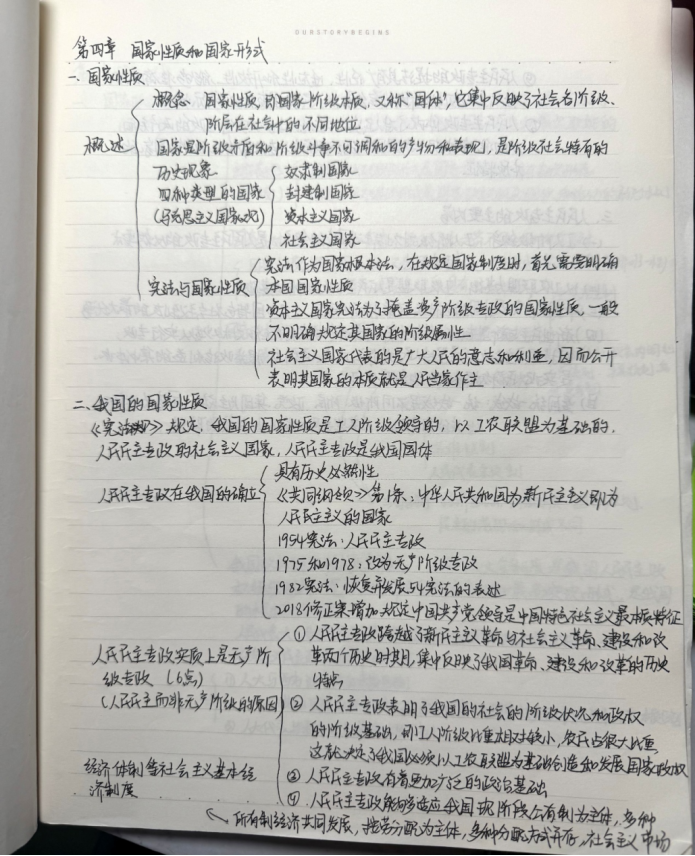 OURSTORYBEGINS
第四章 国家性质和国家形式
一、国家性质
概念 国家性质,即国家阶级本质,又称"国体",它集中反映了社会各阶级、
阶层在社会中的不同地位
概述 国家是阶级矛盾和阶级斗争不可调和的产物和表现,是阶级社会特有的
历史现象
四种类型的国家
(马克思主义国家观)
奴隶制国家
封建制国家
资本主义国家
社会主义国家
宪法与国家性质
宪法作为国家根本法,在规定国家制度时,首先需要明确
本国国家性质
资本主义国家宪法为了掩盖资产阶级专政的国家性质,一般
不明确规定其国家的阶级属性
社会主义国家代表的是广大人民的意志和利益,因而公开
表明其国家的本质就是人民当家作主
二、我国的国家性质
《宪法》规定,我国的国家性质是工人阶级领导的,以工农联盟为基础的,
人民民主专政的社会主义国家,人民民主专政是我国国体
人民民主专政在我国的确立
具有历史必然性
《共同纲领》第1条:中华人民共和国为新民主主义即为
人民民主主义的国家
1954宪法:人民民主专政
1975和1978:改为无产阶级专政
1982宪法:恢复和发展54宪法的表述
2018修正案增加规定中国共产党领导是中国特色社会主义最本质特征
人民民主专政实质上是无产阶
级专政 (6点)
(人民民主而非无产阶级的原因)
① 人民民主专政跨越了新民主主义革命与社会主义革命、建设和改
革两个历史时期,集中反映了我国革命、建设和改革的历史
特点
② 人民民主专政表明了我国的社会的阶级状况和政权
的阶级基础,即工人阶级比重相对较小,农民占很大比重,
这就决定了我国必须以工农联盟为基础创造和发展国家政权
③ 人民民主专政有着更加广泛的政治基础
经济体制等社会主义基本经
济制度
④ 人民民主专政能够适应我国现阶段公有制为主体,多种
所有制经济共同发展,按劳分配为主体,多种分配方式并存,社会主义市场